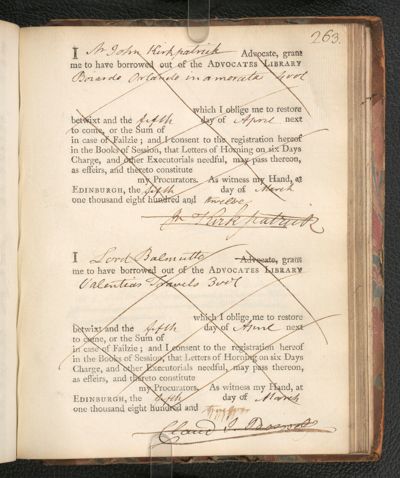 263.
I Mr John Kirkpatrick Advocate, grant
me to have borrowed out of the ADVOCATES LIBRARY
Boiardo Orlando inamorata 4 vol
which I oblige me to restore
betwixt and the fifth day of April next
to come, or the Sum of
in case of Failzie; and I consent to the registration hereof
in the Books of Session, that Letters of Horning on six Days
Charge, and other Executorials needful, may pass thereon,
as effeirs, and thereto constitute
my Procurators. As witness my Hand, at
EDINBURGH, the fifth day of March
one thousand eight hundred and twelve
Jn Kirkpatrick
I Lord Balmuto Advocate, grant
me to have borrowed out of the ADVOCATES LIBRARY
Valentias Travels 3 vol
which I oblige me to restore
betwixt and the fifth day of April next
to come, or the Sum of
in case of Failzie; and I consent to the registration hereof
in the Books of Session, that Letters of Horning on six Days
Charge, and other Executorials needful, may pass thereon,
as effeirs, and thereto constitute
my Procurators. As witness my Hand, at
EDINBURGH, the fifth day of March
one thousand eight hundred and
Claud